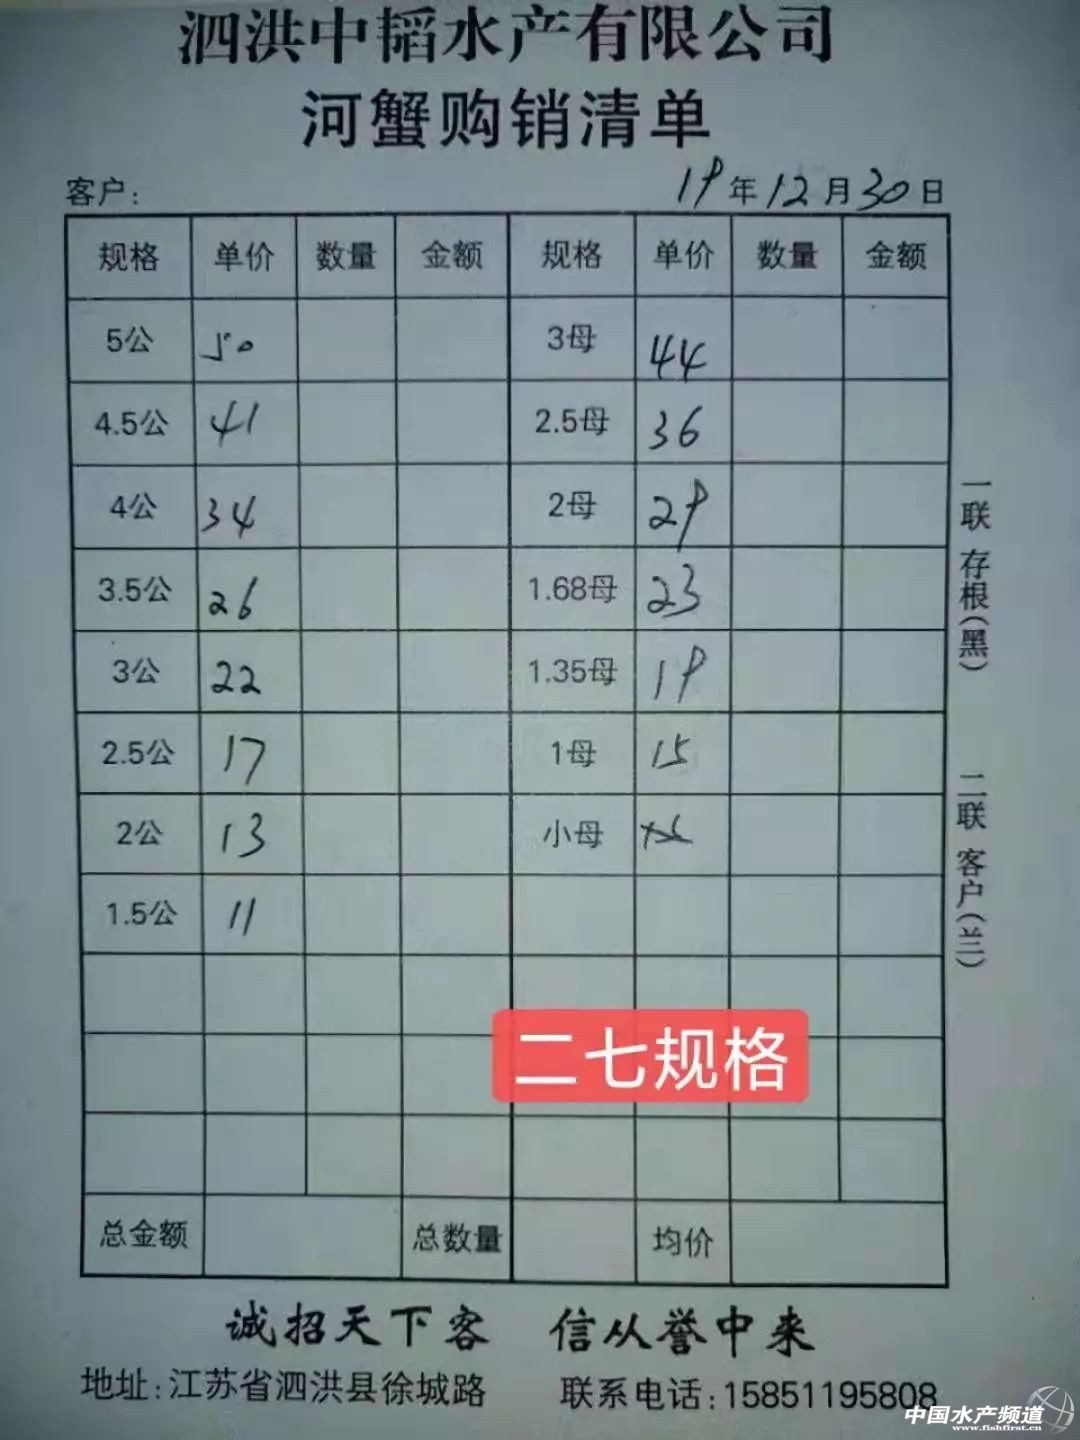 泗洪中韬水产有限公司
河蟹购销清单
客户: 19年12月30日
规格 单价 数量 金额 规格 单价 数量 金额
5公 50 3母 44
4.5公 41 2.5母 36
4公 34 2母 29
3.5公 26 1.68母 23
3公 22 1.35母 19
2.5公 17 1母 15
2公 13 小母
1.5公 11
二七规格
总金额 总数量 均价
一联 存根(黑) 二联 客户(兰)
诚招天下客 信从誉中来
地址:江苏省泗洪县徐城路 联系电话:15851195808
中国水产频道
www.fishfirst.cn